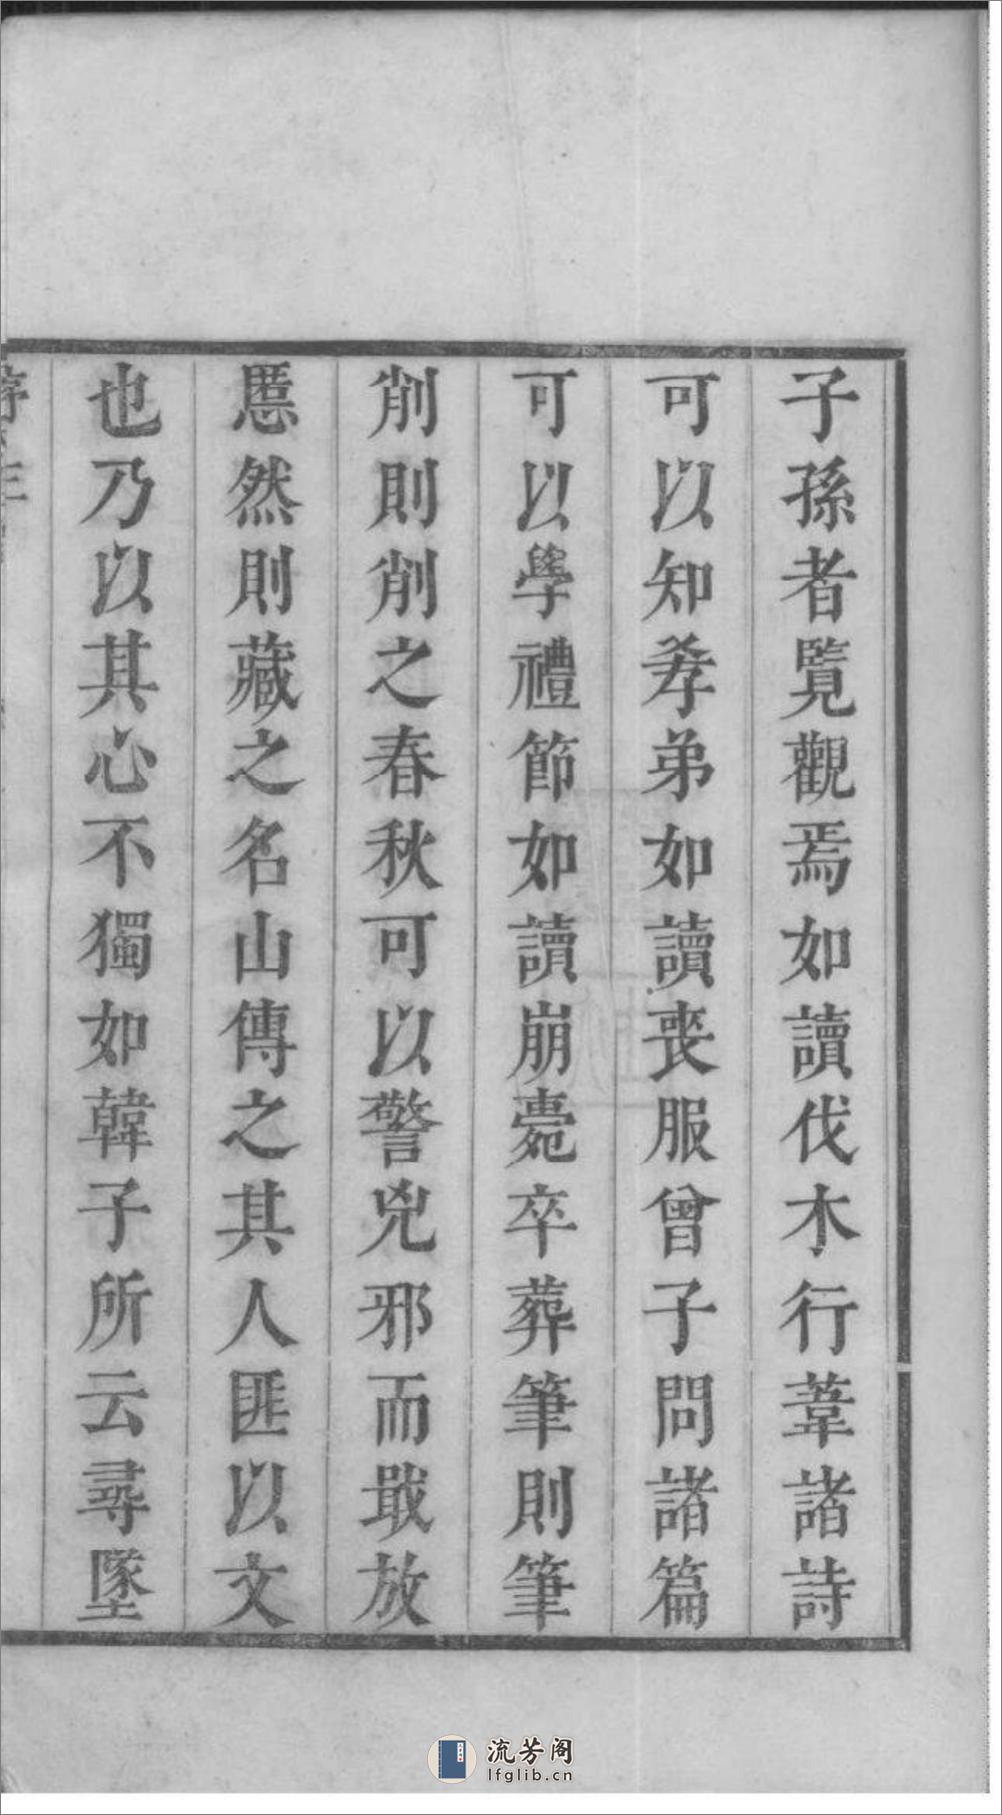 子孫者覽觀焉如讀伐木行葦諸詩
可以知孝弟如讀喪服曾子問諸篇
可以學禮節如讀崩薨卒葬筆則筆
削則削之春秋可以警兇邪而戢放
慝然則藏之名山傳之其人匪以文
也乃以其心不獨如韓子所云尋墜
流芳阁
lfglib.cn